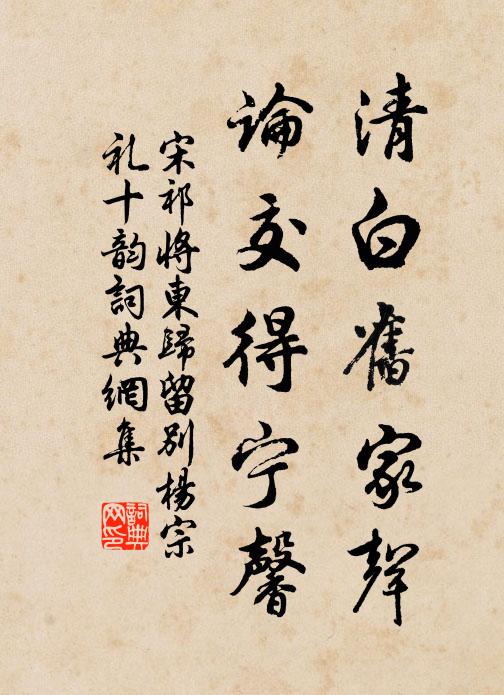 清白舊家聲
論交得宁馨
宋祁將東歸留别楊宗
礼十韵詞典網集
詞典网印